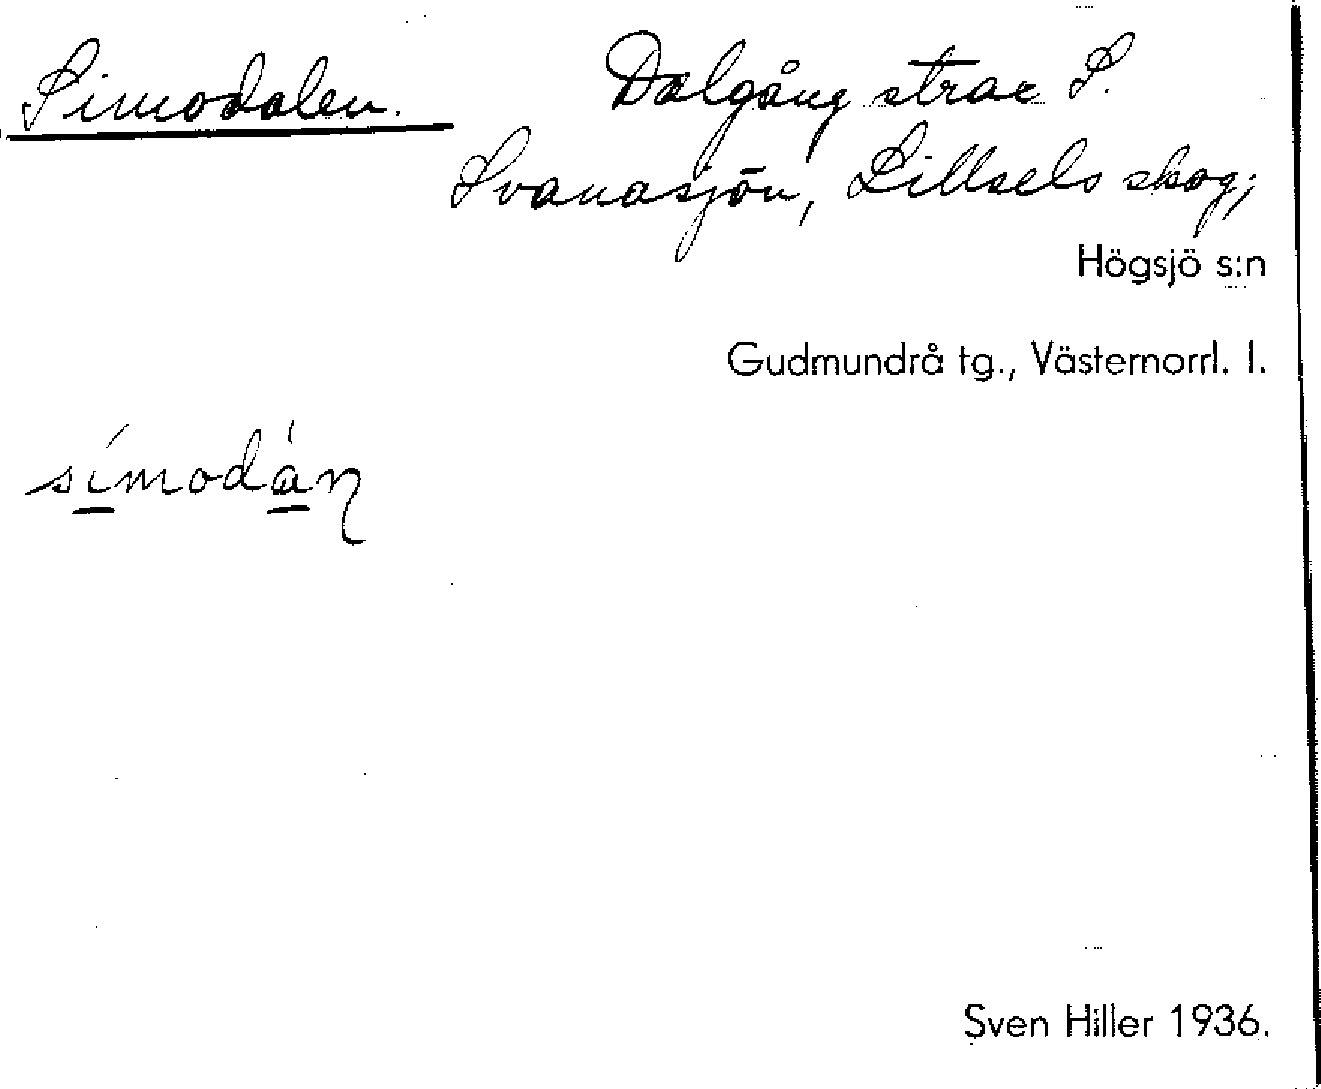 Simodalen. Dalgång strax S.
Svanasjön, Lillsels skog;
Högsjö s:n
Gudmundrå tg., Västernorrl. l.
símodàn
Sven Hiller 1936.